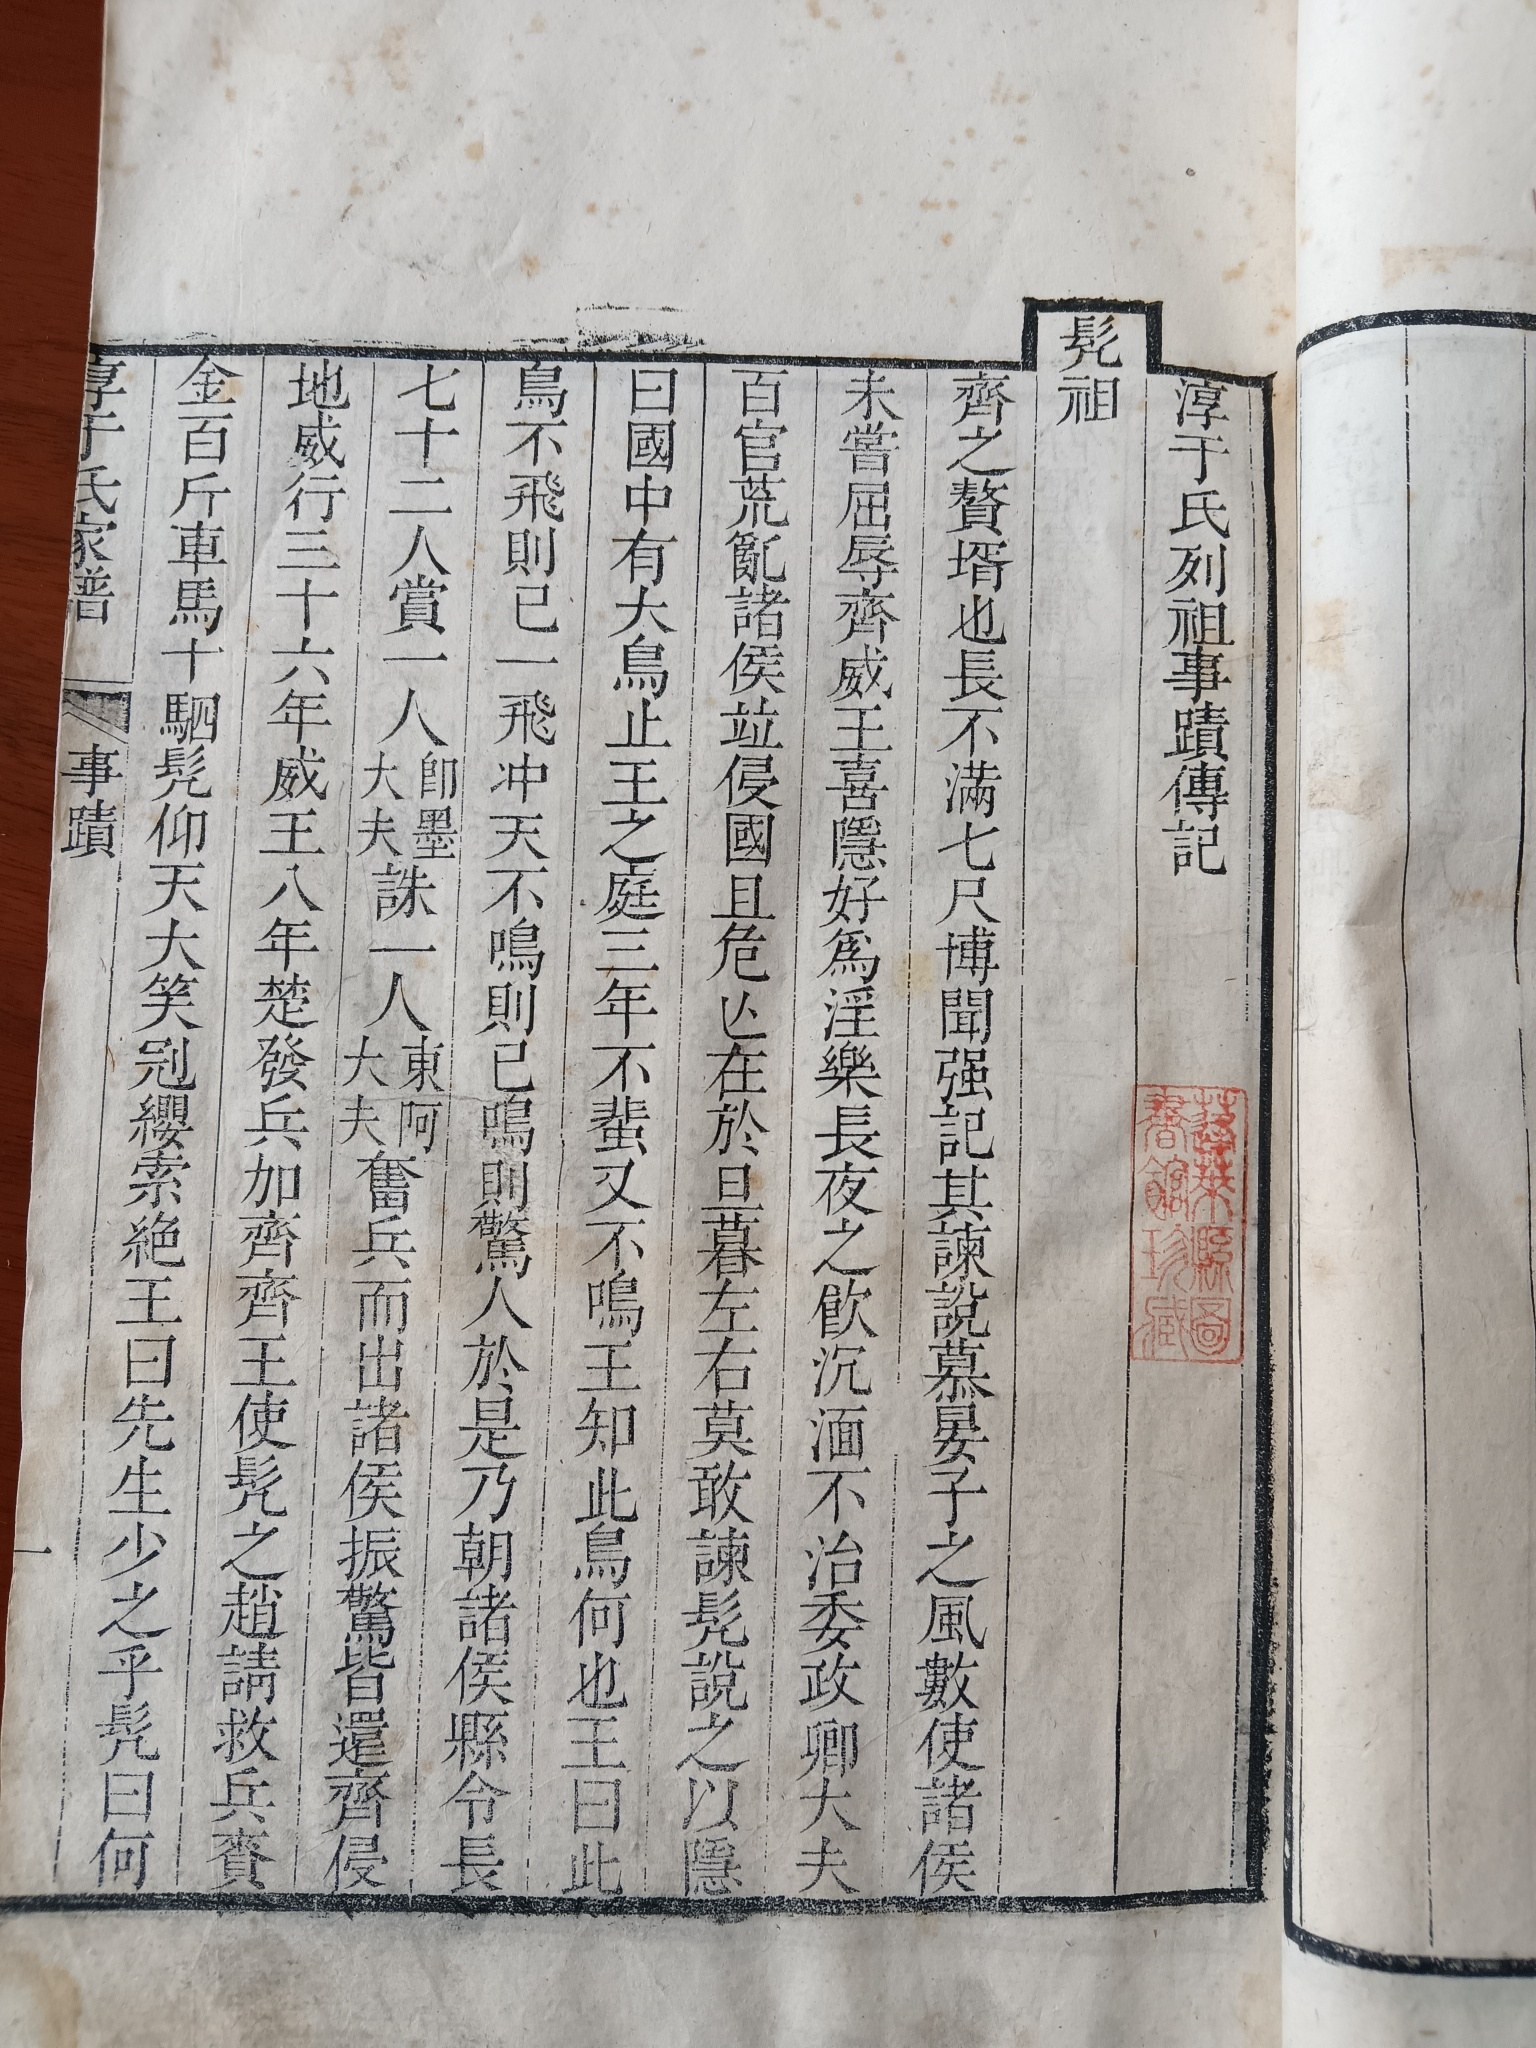 淳于氏列祖事蹟傳記
髠祖
齊之贅壻也長不滿七尺博聞强記其諫說慕晏子之風數使諸侯
未嘗屈辱齊威王喜隱好為淫樂長夜之飮沉湎不治委政卿大夫
百官荒亂諸侯竝侵國且危亾在於旦暮左右莫敢諫髠說之以隱
曰國中有大鳥止王之庭三年不蜚又不鳴王知此鳥何也王曰此
鳥不飛則已一飛冲天不鳴則已鳴則驚人於是乃朝諸侯縣令長
七十二人賞一人卽墨大夫誅一人東阿大夫奮兵而出諸侯振驚皆還齊侵
地威行三十六年威王八年楚發兵加齊齊王使髠之趙請救兵賫
金百斤車馬十駟髠仰天大笑冠纓索絶王曰先生少之乎髠曰何
淳于氏家譜 事蹟 一
莘縣圖
書館珍藏